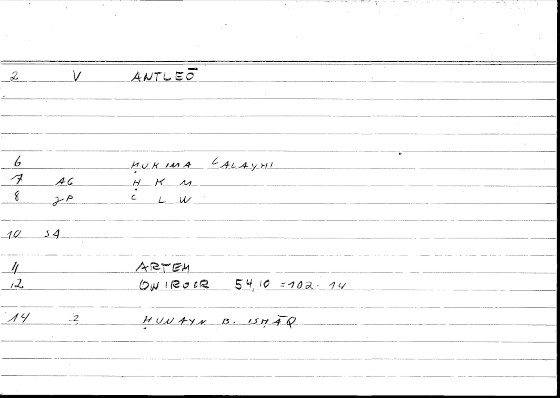 2 V ANTLEŌ
6 ḤUKIMA ʿALAYHI
7 AC Ḥ K M
8 JP ʿ L W
10 SA
11 ARTEM
12 ONIROCR 54,10 =102.14
14 2 ḤUNAYN B. ISḤĀQ